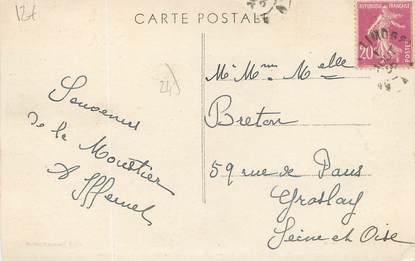 12f
CARTE POSTALE
REPUBLIQUE FRANÇAISE
20c
POSTES
Souvenirs
de la Moustier
24)
Mr Mme Melle
Breton
59 rue de Paris
Groslay
Seine et Oise